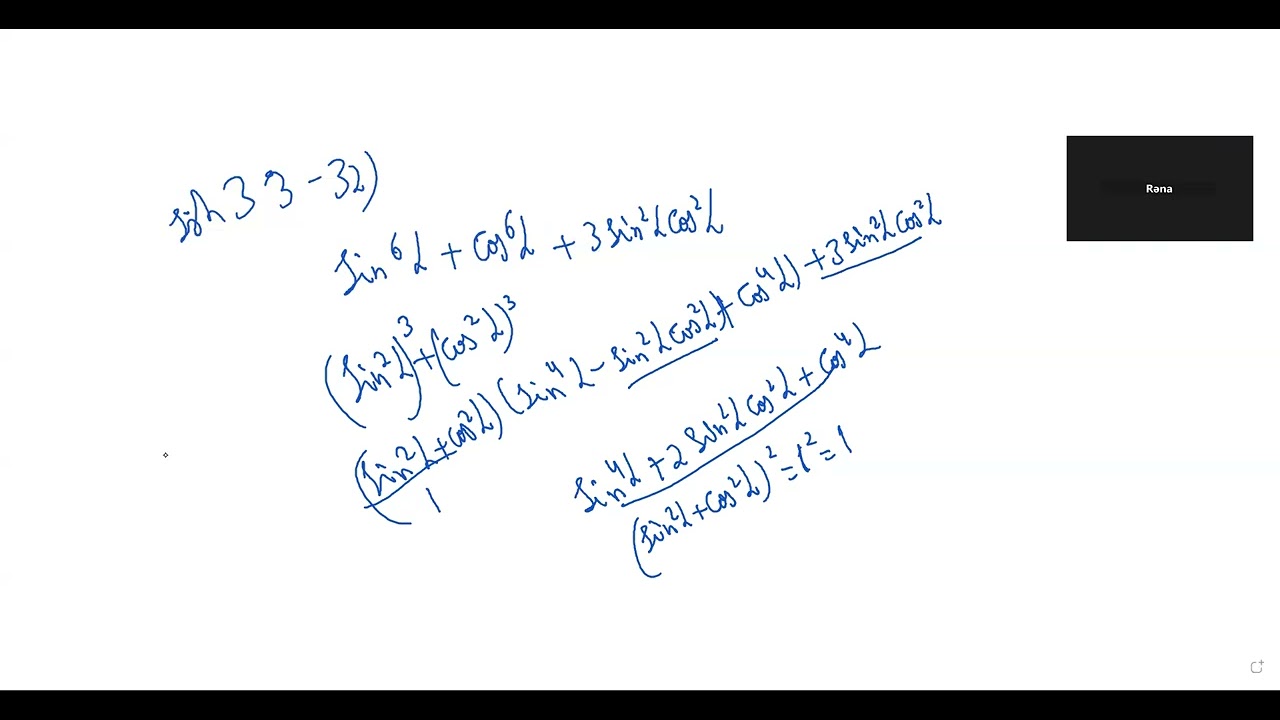 səh 33-32)
sin⁶α + cos⁶α + 3sin²αcos²α
(sin²α)³ + (cos²α)³
(sin²α+cos²α)(sin⁴α - sin²αcos²α + cos⁴α) + 3sin²αcos²α
1
sin⁴α + 2sin²αcos²α + cos⁴α
(sin²α+cos²α)² = 1² = 1
Rəna